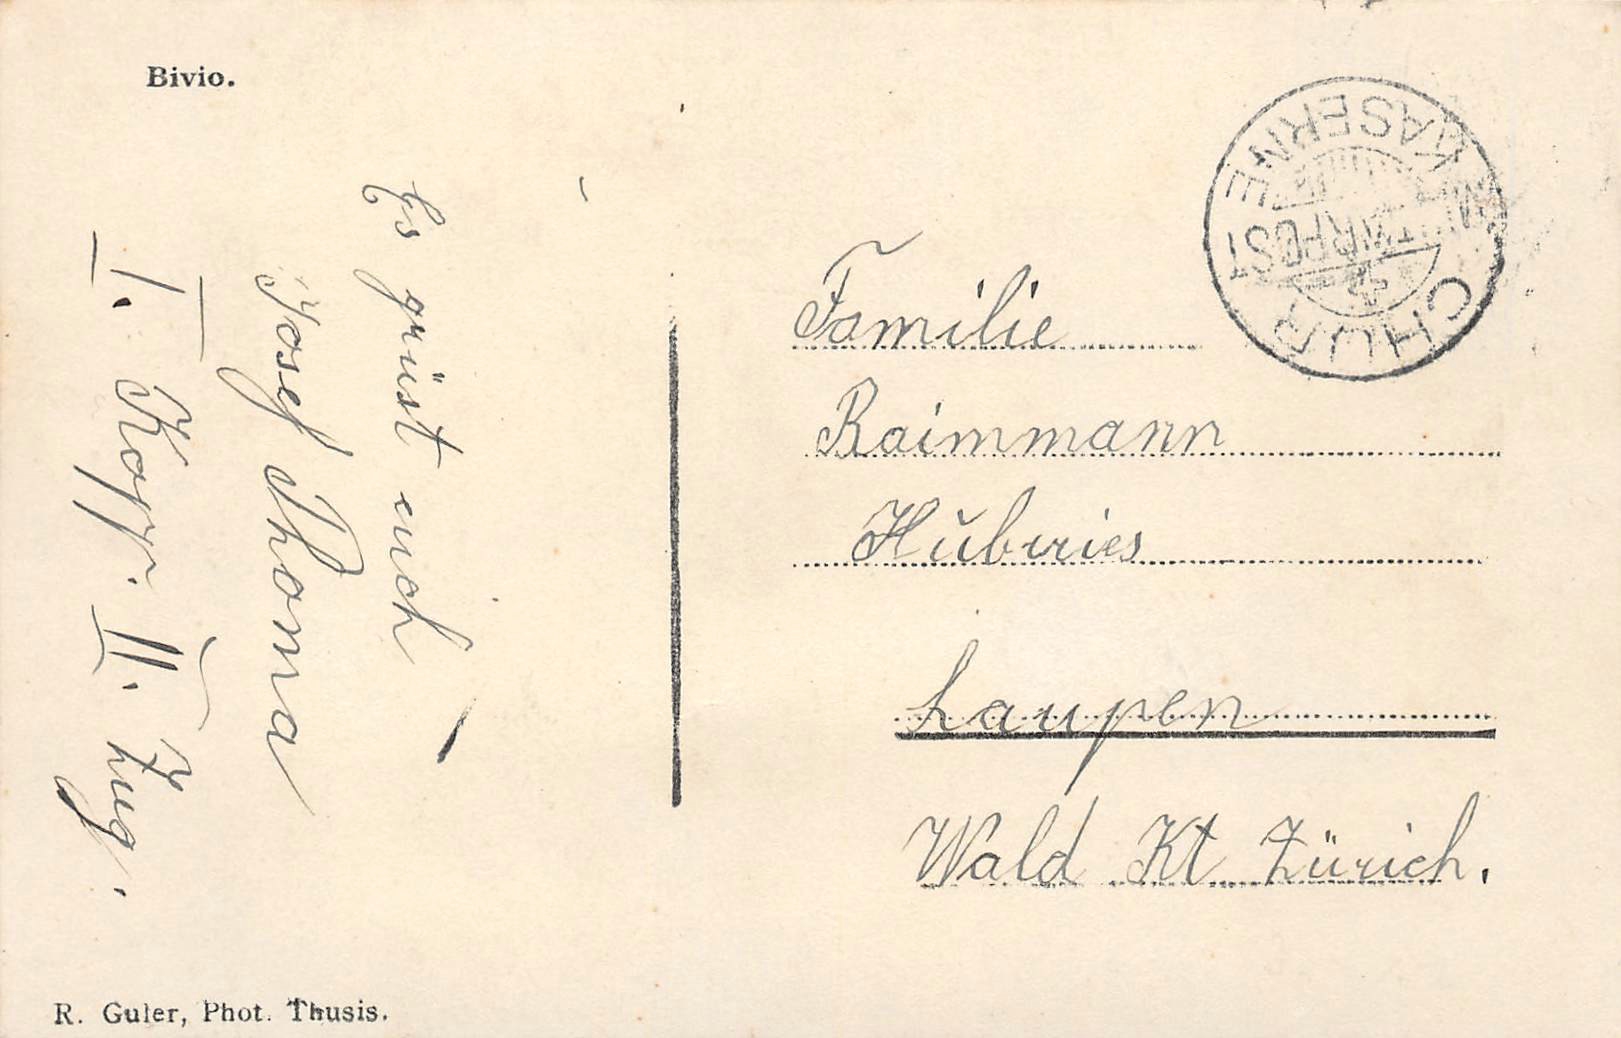 Bivio.
Es grüst euch
Josef Thoma
I. Kopp. II. Zug.
R. Guler, Phot. Thusis.
CHUR
KASERNE
MILITÄRPOST
Familie
Raimmann
Hübries
Laupen
Wald Kt Zürich.